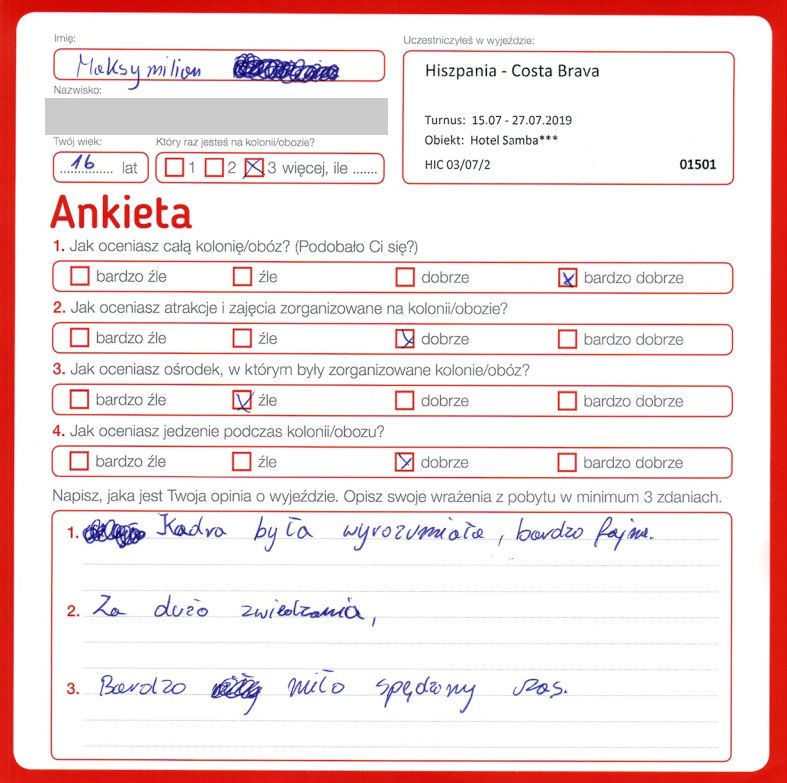 Imię:
Maksymilian
Nazwisko:
Twój wiek:
16 lat
Który raz jesteś na kolonii/obozie?
1 2 3 więcej, ile .......
Uczestniczyłeś w wyjeździe:
Hiszpania - Costa Brava
Turnus: 15.07 - 27.07.2019
Obiekt: Hotel Samba***
HIC 03/07/2 01501
Ankieta
1. Jak oceniasz całą kolonię/obóz? (Podobało Ci się?)
bardzo źle źle dobrze bardzo dobrze
2. Jak oceniasz atrakcje i zajęcia zorganizowane na kolonii/obozie?
bardzo źle źle dobrze bardzo dobrze
3. Jak oceniasz ośrodek, w którym były zorganizowane kolonie/obóz?
bardzo źle źle dobrze bardzo dobrze
4. Jak oceniasz jedzenie podczas kolonii/obozu?
bardzo źle źle dobrze bardzo dobrze
Napisz, jaka jest Twoja opinia o wyjeździe. Opisz swoje wrażenia z pobytu w minimum 3 zdaniach.
1. Kadra była wyrozumiała, bardzo fajna.
2. Za dużo zwiedzania,
3. Bardzo miło spędzony czas.